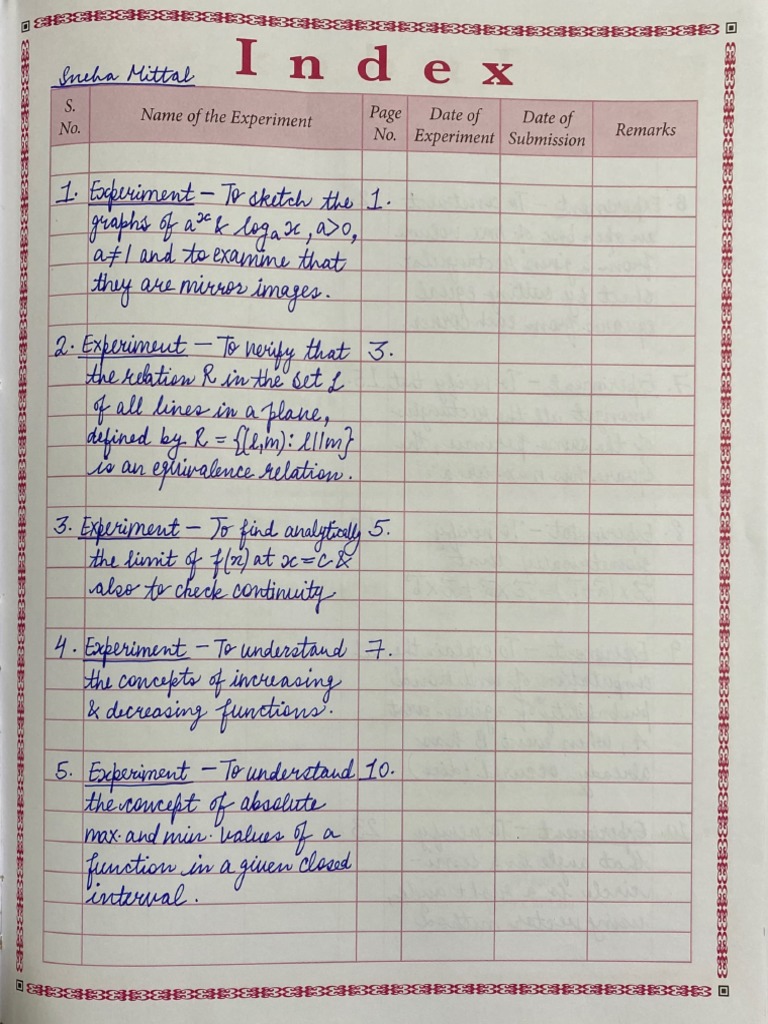 Index
Sneha Mittal
S. No. Name of the Experiment Page No. Date of Experiment Date of Submission Remarks
1. Experiment – To sketch the 1.
graphs of aˣ & logₐx, a>0,
a≠1 and to examine that
they are mirror images.
2. Experiment – To verify that 3.
the relation R in the set L
of all lines in a plane,
defined by R = {(l,m): l||m}
is an equivalence relation.
3. Experiment – To find analytically 5.
the limit of f(x) at x=c &
also to check continuity
4. Experiment – To understand 7.
the concepts of increasing
& decreasing functions.
5. Experiment – To understand 10.
the concept of absolute
max. and min. values of a
function in a given closed
interval.